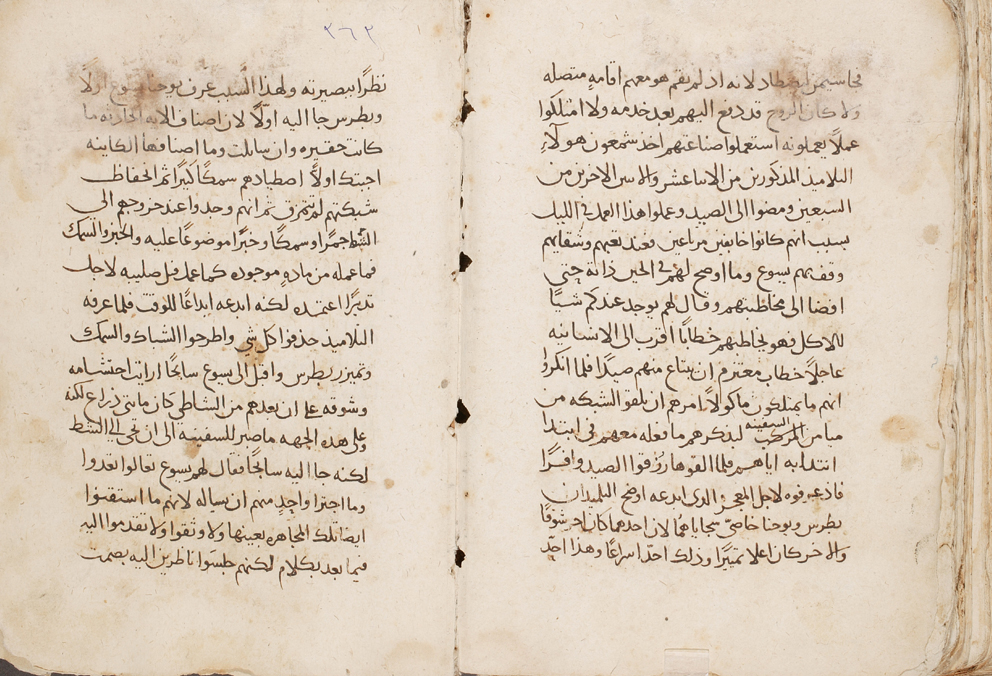 لانه اذ لم يقم هو معهم اقامه متصله
ولا كان الروح قد دفع اليهم بعد خدمه ولا امتلكوا
عملاً يعملونه استعملوا صناعتهم اخذ شمعون هولاءِ
التلاميذ المذكورين من الاثنا عشر والاثنين الاخرين من
السبعين ومضوا الى الصيد وعملوا هذا العمل في الليل
بسبب انهم كانوا خايفين مرتاعين فعند تعبهم وشقايهم
وقف بهم يسوع وما اوضح لهم في الحين ذاته حتى
افضا الى مخاطبتهم وقال لهم يوجد عندكم شياً
للاكل فهو يخاطبهم خطاباً اقرب الى الانسانيه
عاجلاً خطاب معتزم ان يبتاع منهم صيداً فلما انكروا
انهم ما يمتلكون ماكولاً امرهم ان يلقوا الشبكه من
ميامن المركب السفينه ليذكرهم ما فعله معهم في ابتدا
انتدابه اياهم فلما القوها رزقوا الصيد وافراً
فاذ عرفوه لاجل المعجز الذى ابدعه اوضح التلميذان
بطرس ويوحنا خاصتي سجاياهما لان احدهما كان احر شوقاً
والاخر كان اعلا تميزاً وذلك احد اسراعاً وهذا احد
٣٦٣
نظراً ببصيرته ولهذا السبب عرف يوحنا يسوع اولاً
وبطرس جا اليه اولاً لان اصناف الايه الحادثه ما
كانت حقيره وان سايلت وما اصنافها الكاينه
اجبتك اولاً اصطيادهم سمكاً كثيراً ثم الحفاظ
شبكتهم لم تتمزق ثم انهم وجدوا عند خروجهم الى
الشط جمراً وسمكاً وخبزاً موضوعاً عليه والخبز والسمك
فما عمله من مادهٍ موجوده كما عمل قبل صلبيه لاجل
تدبيراً اعتمده لكنه ابدعه ابداعاً للوقت فلما عرفه
التلاميذ حذفوا كل شي واطرحوا الشباك والسمك
وتميزر بطرس واقبل الى يسوع سابحاً ارايت احتشامه
وشوقه على ان بعدهم من الشاطي كان مايتى ذراع لكنه
ولا على هذه الجهه ما صبر للسفينه الى ان تجي الى الشط
لكنه جا اليه سابحاً فقال لهم يسوع تعالوا تغدوا
وما اجترا واحدٍ منهم ان يساله لانهم ما استقنوا
ايضا تلك المجاهره بعينها ولا وثقوا ولا تقدموا اليه
فيما بعد بكلام لكنهم جلسوا ناظرين اليه بصمت